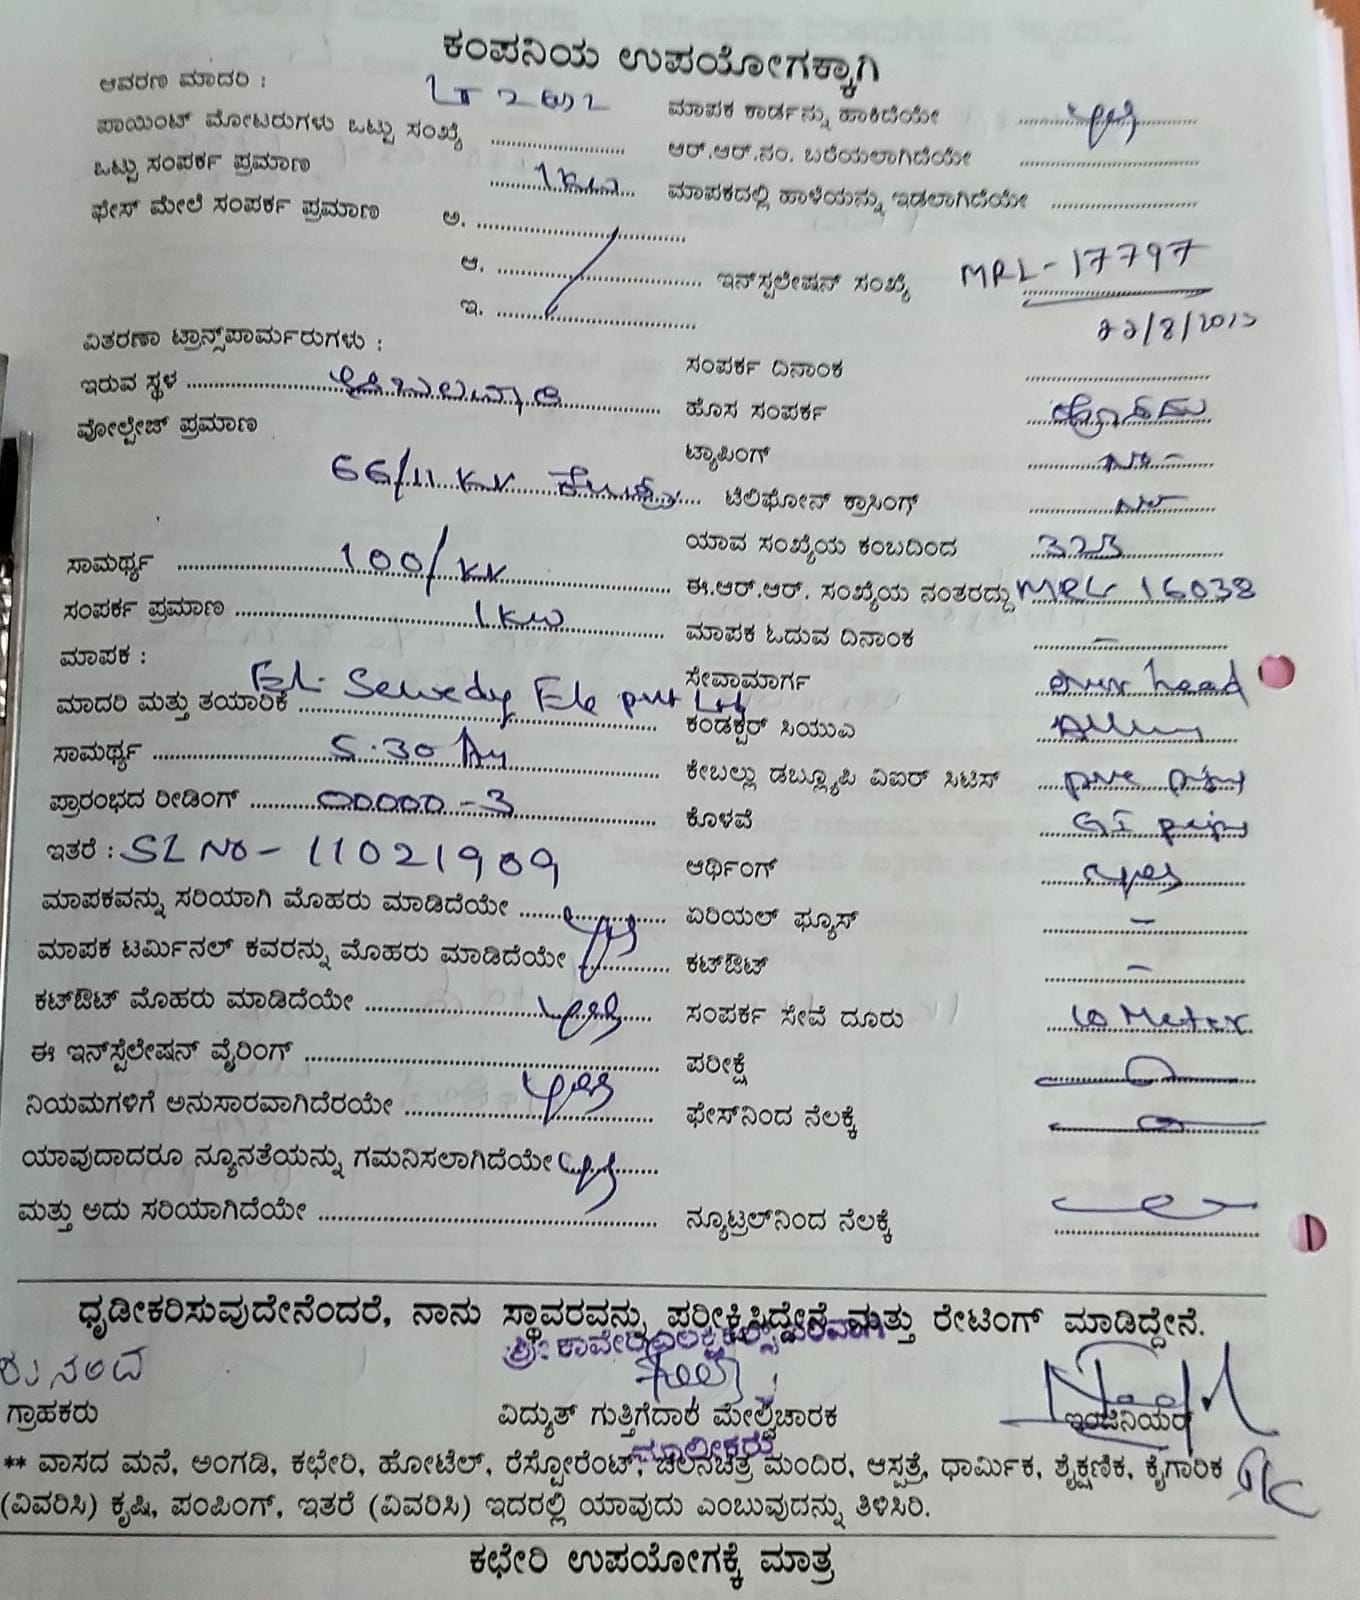 ಕಂಪನಿಯ ಉಪಯೋಗಕ್ಕಾಗಿ
ಆವರಣ ಮಾದರಿ : LT 2
ಮಾಪಕ ಕಾರ್ಡನ್ನು ಹಾಕಿದೆಯೇ yes
ಪಾಯಿಂಟ್ ಮೋಟರುಗಳು ಒಟ್ಟು ಸಂಖ್ಯೆ
ಆರ್.ಆರ್.ನಂ. ಬರೆಯಲಾಗಿದೆಯೇ
ಒಟ್ಟು ಸಂಪರ್ಕ ಪ್ರಮಾಣ 1kw
ಮಾಪಕದಲ್ಲಿ ಹಾಳೆಯನ್ನು ಇಡಲಾಗಿದೆಯೇ
ಫೇಸ್ ಮೇಲೆ ಸಂಪರ್ಕ ಪ್ರಮಾಣ ಅ.
ಆ.
ಇನ್‌ಸ್ಟಲೇಷನ್ ಸಂಖ್ಯೆ MRL-17797
ಇ.
22/8/2012
ವಿತರಣಾ ಟ್ರಾನ್ಸ್‌ಫಾರ್ಮರುಗಳು :
ಸಂಪರ್ಕ ದಿನಾಂಕ
ಇರುವ ಸ್ಥಳ
ಹೊಸ ಸಂಪರ್ಕ ಹೊಸದು
ವೋಲ್ಟೇಜ್ ಪ್ರಮಾಣ
ಟ್ಯಾಪಿಂಗ್ No
66/11 KV
ಟೆಲಿಫೋನ್ ಕ್ರಾಸಿಂಗ್ No
ಯಾವ ಸಂಖ್ಯೆಯ ಕಂಬದಿಂದ 323
ಸಾಮರ್ಥ್ಯ 100/KV
ಈ.ಆರ್.ಆರ್. ಸಂಖ್ಯೆಯ ನಂತರದ್ದು MRL 16038
ಸಂಪರ್ಕ ಪ್ರಮಾಣ 1KW
ಮಾಪಕ ಓದುವ ದಿನಾಂಕ –
ಮಾಪಕ :
ಸೇವಾಮಾರ್ಗ over head
ಮಾದರಿ ಮತ್ತು ತಯಾರಿಕೆ EL. Sewedy Ele pvt Ltd
ಕಂಡಕ್ಟರ್ ಸಿಯುಎ
ಸಾಮರ್ಥ್ಯ 5.30 Am
ಕೇಬಲ್ಲು ಡಬ್ಲ್ಯೂಪಿ ವಿಐರ್ ಸಿಟಿಸ್
ಪ್ರಾರಂಭದ ರೀಡಿಂಗ್ 00000-3
ಕೊಳವೆ GI
ಇತರೆ : SL No - 11021909
ಆರ್ಥಿಂಗ್ yes
ಮಾಪಕವನ್ನು ಸರಿಯಾಗಿ ಮೊಹರು ಮಾಡಿದೆಯೇ
ಏರಿಯಲ್ ಫ್ಯೂಸ್ –
ಮಾಪಕ ಟರ್ಮಿನಲ್ ಕವರನ್ನು ಮೊಹರು ಮಾಡಿದೆಯೇ yes
ಕಟ್‌ಔಟ್ –
ಕಟ್‌ಔಟ್ ಮೊಹರು ಮಾಡಿದೆಯೇ yes
ಸಂಪರ್ಕ ಸೇವೆ ದೂರು Meter
ಈ ಇನ್‌ಸ್ಟೆಲೇಷನ್ ವೈರಿಂಗ್
ಪರೀಕ್ಷೆ
ನಿಯಮಗಳಿಗೆ ಅನುಸಾರವಾಗಿದೆರಯೇ yes
ಫೇಸ್‌ನಿಂದ ನೆಲಕ್ಕೆ
ಯಾವುದಾದರೂ ನ್ಯೂನತೆಯನ್ನು ಗಮನಿಸಲಾಗಿದೆಯೇ
ಮತ್ತು ಅದು ಸರಿಯಾಗಿದೆಯೇ
ನ್ಯೂಟ್ರಲ್‌ನಿಂದ ನೆಲಕ್ಕೆ
ಧೃಡೀಕರಿಸುವುದೇನೆಂದರೆ, ನಾನು ಸ್ಥಾವರವನ್ನು ಪರೀಕ್ಷಿಸಿದ್ದೇನೆ ಮತ್ತು ರೇಟಿಂಗ್ ಮಾಡಿದ್ದೇನೆ.
ಶ್ರೀ ಕಾವೇರಿ
ಗ್ರಾಹಕರು
ವಿದ್ಯುತ್ ಗುತ್ತಿಗೆದಾರ ಮೇಲ್ವಿಚಾರಕ
ಇಂಜಿನಿಯರ್
ಮಾಲೀಕರು
** ವಾಸದ ಮನೆ, ಅಂಗಡಿ, ಕಛೇರಿ, ಹೋಟೆಲ್, ರೆಸ್ಟೋರೆಂಟ್, ಚಲನಚಿತ್ರ ಮಂದಿರ, ಆಸ್ಪತ್ರೆ, ಧಾರ್ಮಿಕ, ಶೈಕ್ಷಣಿಕ, ಕೈಗಾರಿಕ
(ವಿವರಿಸಿ) ಕೃಷಿ, ಪಂಪಿಂಗ್, ಇತರೆ (ವಿವರಿಸಿ) ಇದರಲ್ಲಿ ಯಾವುದು ಎಂಬುವುದನ್ನು ತಿಳಿಸಿರಿ.
ಕಛೇರಿ ಉಪಯೋಗಕ್ಕೆ ಮಾತ್ರ